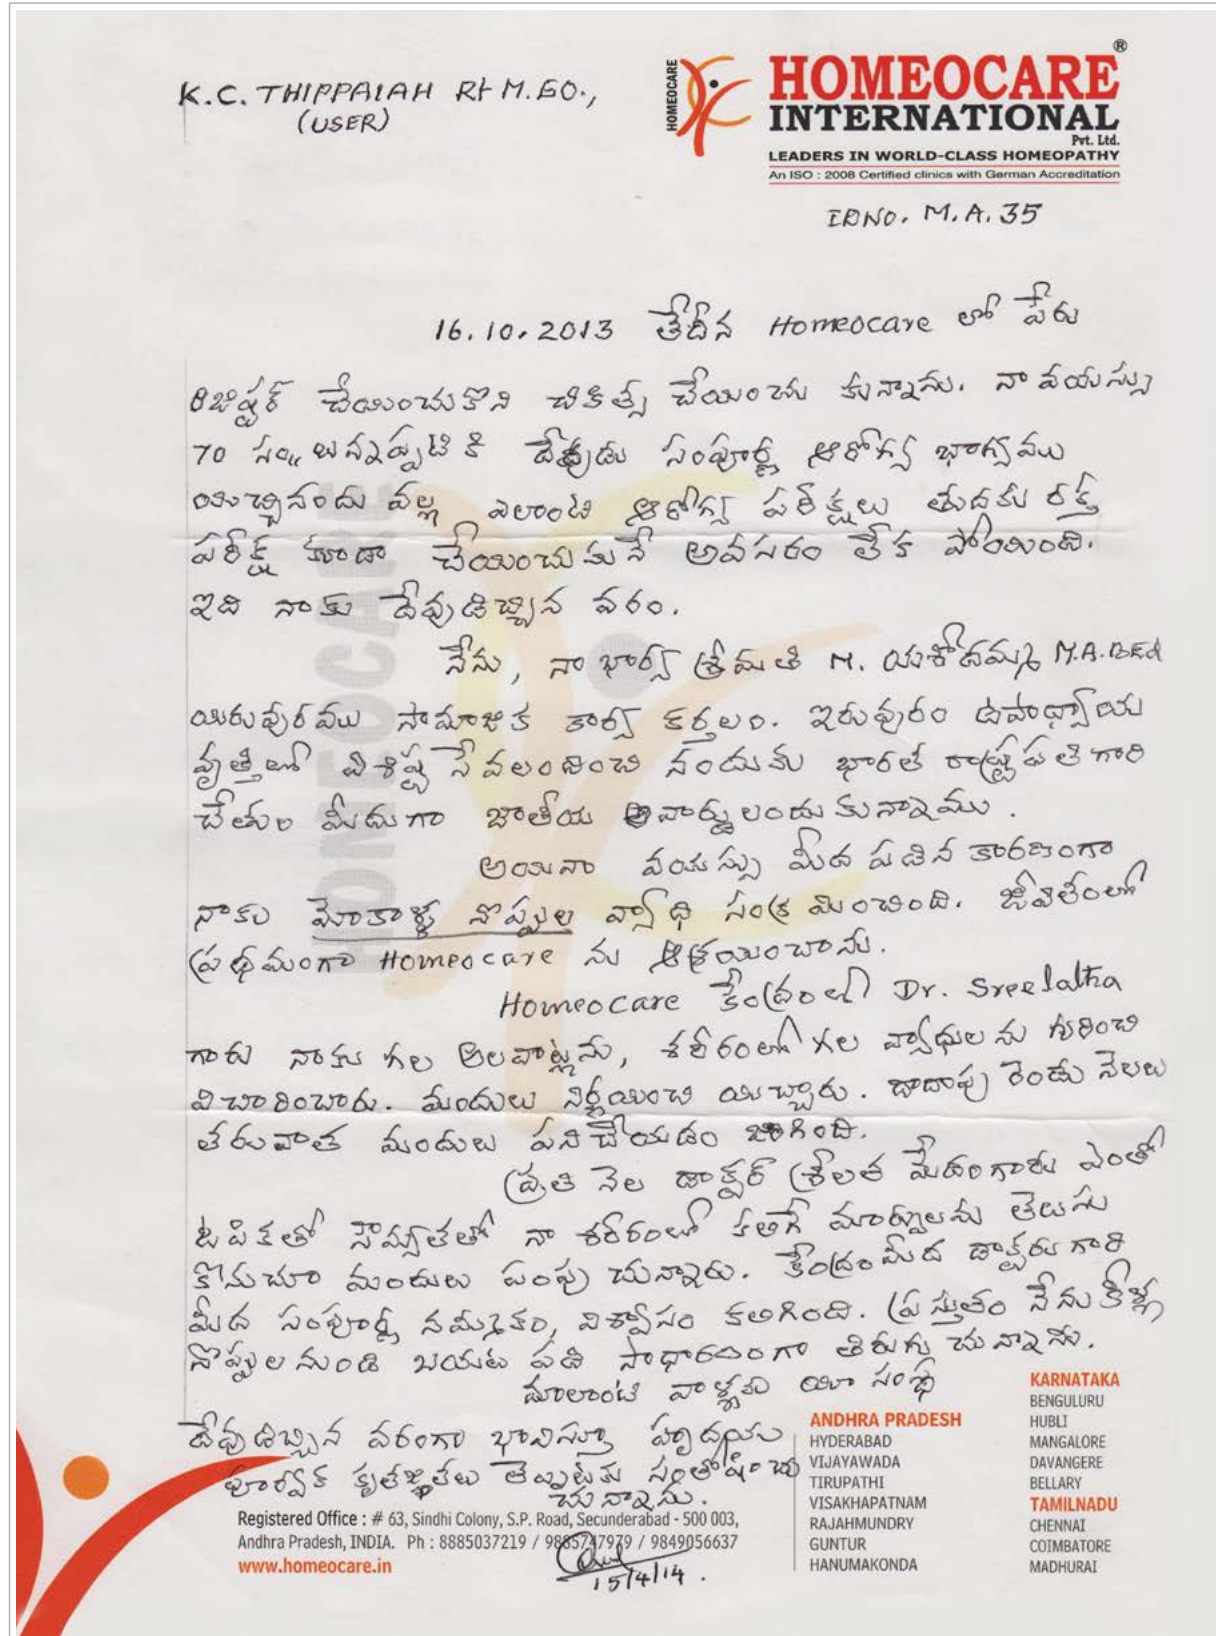 K.C. THIPPAIAH Rt M.EO.,
(USER)
HOMEOCARE
HOMEOCARE®
INTERNATIONAL
Pvt. Ltd.
LEADERS IN WORLD-CLASS HOMEOPATHY
An ISO : 2008 Certified clinics with German Accreditation
IDNO. M.A.35
16.10.2013 తేదీన Homeocare లో పేరు
రిజిష్టర్ చేయించుకొని చికిత్స చేయించు కున్నాను. నా వయస్సు
70 సం॥లున్నప్పటికి దేవుడు సంపూర్ణ ఆరోగ్య భాగ్యము
యిచ్చినందు వల్ల ఎలాంటి ఆరోగ్య పరీక్షలు తుదకు రక్త
పరీక్ష కూడా చేయించుకునే అవసరం లేక పోయింది.
ఇది నాకు దేవుడిచ్చిన వరం.
నేను, నా భార్య శ్రీమతి M. యశోదమ్మ M.A.BEd
యిరువురము సామాజిక కార్య కర్తలం. ఇరువురం ఉపాధ్యాయ
వృత్తిలో విశిష్ట సేవలందించి నందుకు భారత రాష్ట్రపతి గారి
చేతుల మీదుగా జాతీయ అవార్డులందుకున్నాము.
అయినా వయస్సు మీద పడిన కారణంగా
నాకు మోకాళ్ళ నొప్పుల వ్యాధి సంక్రమించింది. జీవితంలో
ప్రథమంగా Homeocare ను ఆశ్రయించాను.
Homeocare కేంద్రంలో Dr. Sreelatha
గారు నాకు గల అలవాట్లను, శరీరంలో గల వ్యాధులను గురించి
విచారించారు. మందులు నిర్ణయించి యిచ్చారు. దాదాపు రెండు నెలలు
తరువాత మందులు పనిచేయడం జరిగింది.
ప్రతి నెల డాక్టర్ శ్రీలత మేడంగారు ఎంతో
ఓపికతో సౌమ్యతతో నా శరీరంలో కలిగే మార్పులను తెలుసు
కొనుచూ మందులు పంపు చున్నారు. కేంద్రం మీద డాక్టరు గారి
మీద సంపూర్ణ నమ్మకం, విశ్వాసం కలిగింది. ప్రస్తుతం నేను కీళ్ళ
నొప్పుల నుండి బయట పడి సాధారణంగా తిరుగు చున్నాను.
మాలాంటి వాళ్ళకు యీ సంస్థ
దేవుడిచ్చిన వరంగా భావిస్తూ హృదయ
పూర్వక కృతజ్ఞతలు తెల్పుటకు సంతోషించు
చున్నాను.
15/4/14.
Registered Office : # 63, Sindhi Colony, S.P. Road, Secunderabad - 500 003,
Andhra Pradesh, INDIA. Ph : 8885037219 / 9885747979 / 9849056637
www.homeocare.in
ANDHRA PRADESH
HYDERABAD
VIJAYAWADA
TIRUPATHI
VISAKHAPATNAM
RAJAHMUNDRY
GUNTUR
HANUMAKONDA
KARNATAKA
BENGULURU
HUBLI
MANGALORE
DAVANGERE
BELLARY
TAMILNADU
CHENNAI
COIMBATORE
MADHURAI
HOMEOCARE